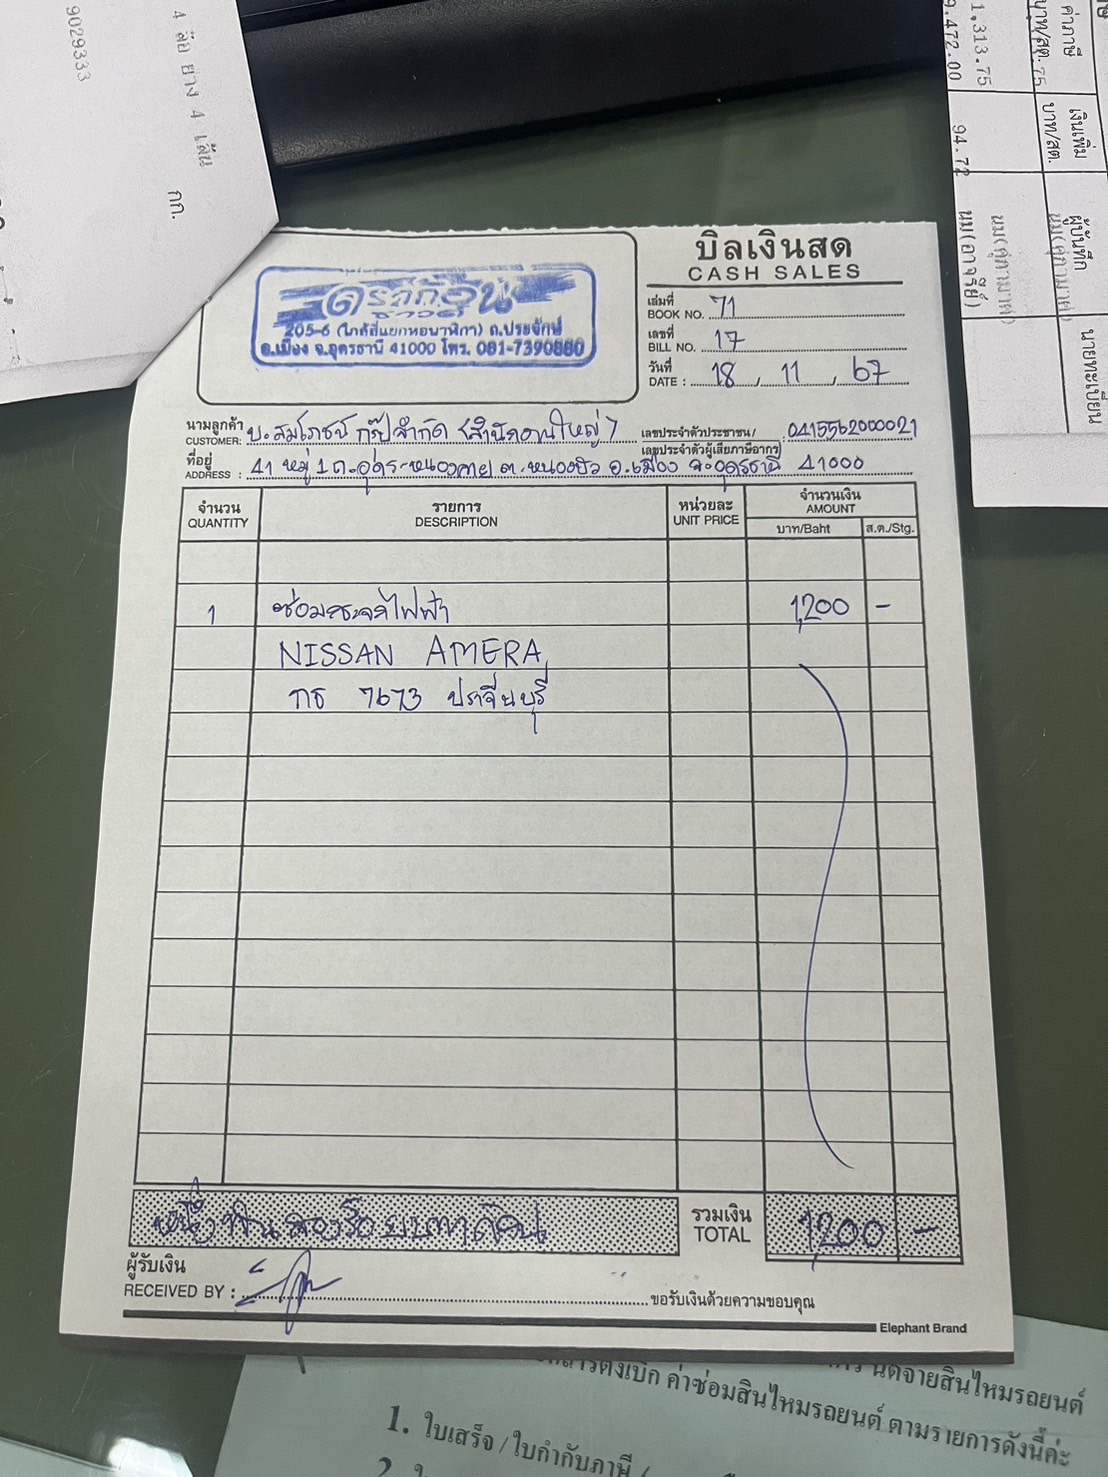 4 ล้อ ยาง 4 เส้น
9029333
กก.
ค่าภาษี
บาท/สต.
1,313.75
9,472.00
เงินเพิ่ม
บาท/สต.
94.72
ผู้บันทึก
นายทะเบียน
บิลเงินสด
CASH SALES
ดราก้อน
ซาวด์
205-6 (ใกล้สี่แยกหอนาฬิกา) ถ.ประจักษ์
อ.เมือง จ.อุดรธานี 41000 โทร. 081-7390880
เล่มที่
BOOK NO. 71
เลขที่
BILL NO. 17
วันที่
DATE : 18 / 11 / 67
นามลูกค้า
CUSTOMER: บ.สมโภชน์ กรุ๊ป จำกัด (สำนักงานใหญ่)
เลขประจำตัวประชาชน/
เลขประจำตัวผู้เสียภาษีอากร : 0415562000021
ที่อยู่
ADDRESS : 41 หมู่ 1 ถ.อุดร-หนองคาย ต.หนองบัว อ.เมือง จ.อุดรธานี 41000
จำนวน รายการ หน่วยละ จำนวนเงิน
QUANTITY DESCRIPTION UNIT PRICE AMOUNT
บาท/Baht ส.ต./Stg.
1 ซ่อมกระจกไฟฟ้า 1,200 -
NISSAN AMERA
กธ 7673 ปราจีนบุรี
หนึ่งพันสองร้อยบาทถ้วน
รวมเงิน
TOTAL 1,200 -
ผู้รับเงิน
RECEIVED BY : ขอรับเงินด้วยความขอบคุณ
Elephant Brand
นัดจ่ายสินไหมรถยนต์
ค่าซ่อมสินไหมรถยนต์ ตามรายการดังนี้ค่ะ
1. ใบเสร็จ / ใบกำกับภาษี /
2.